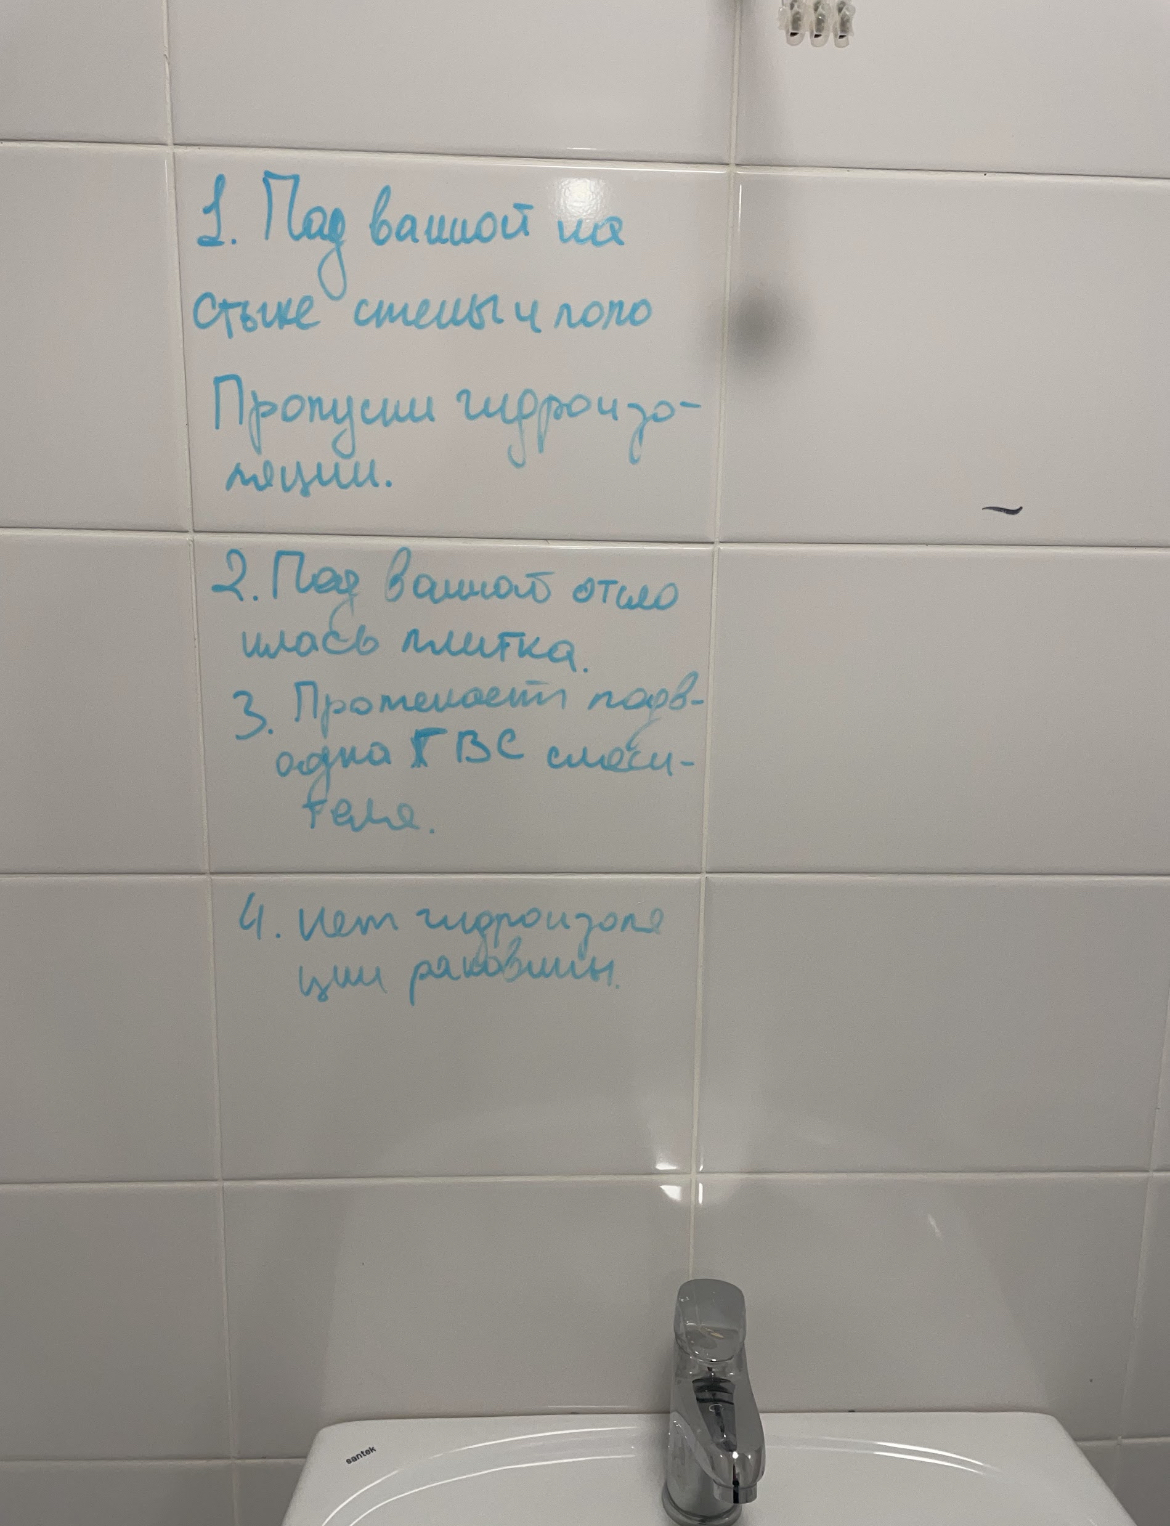 1. Под ванной на
стыке стены и пола
Пропуски гидроизо-
ляции.
2. Под ванной отсло
илась плитка.
3. Протекает подв-
одка ГВС смеси-
теля.
4. Нет гидроизоля
ции раковины.
santek